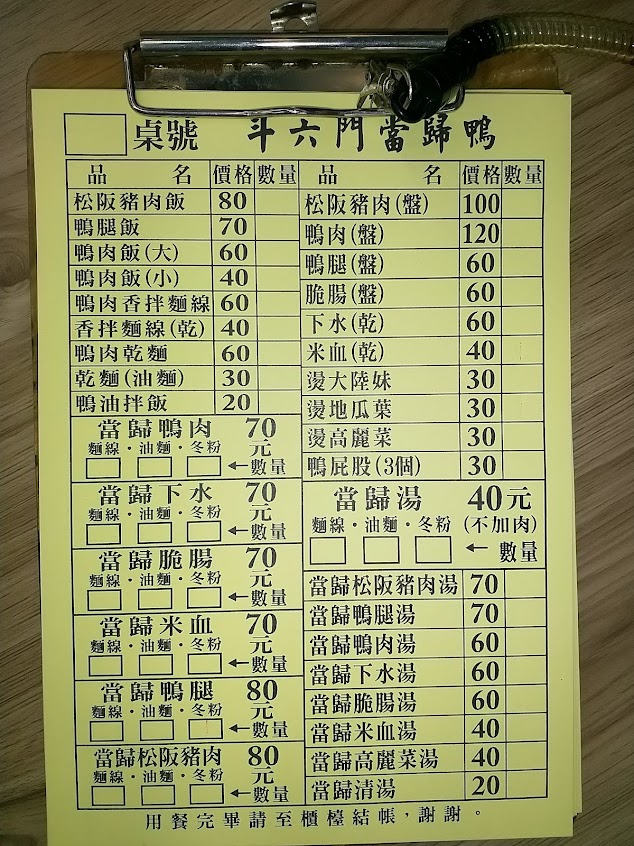 桌號 斗六門當歸鴨
品名 價格 數量
松阪豬肉飯 80
鴨腿飯 70
鴨肉飯(大) 60
鴨肉飯(小) 40
鴨肉香拌麵線 60
香拌麵線(乾) 40
鴨肉乾麵 60
乾麵(油麵) 30
鴨油拌飯 20
當歸鴨肉 70元
麵線·油麵·冬粉
←數量
當歸下水 70元
麵線·油麵·冬粉
←數量
當歸脆腸 70元
麵線·油麵·冬粉
←數量
當歸米血 70元
麵線·油麵·冬粉
←數量
當歸鴨腿 80元
麵線·油麵·冬粉
←數量
當歸松阪豬肉 80元
麵線·油麵·冬粉
←數量
品名 價格 數量
松阪豬肉(盤) 100
鴨肉(盤) 120
鴨腿(盤) 60
脆腸(盤) 60
下水(乾) 60
米血(乾) 40
燙大陸妹 30
燙地瓜葉 30
燙高麗菜 30
鴨屁股(3個) 30
當歸湯 40元
麵線·油麵·冬粉 (不加肉)
←數量
當歸松阪豬肉湯 70
當歸鴨腿湯 70
當歸鴨肉湯 60
當歸下水湯 60
當歸脆腸湯 60
當歸米血湯 40
當歸高麗菜湯 40
當歸清湯 20
用餐完畢請至櫃檯結帳,謝謝。